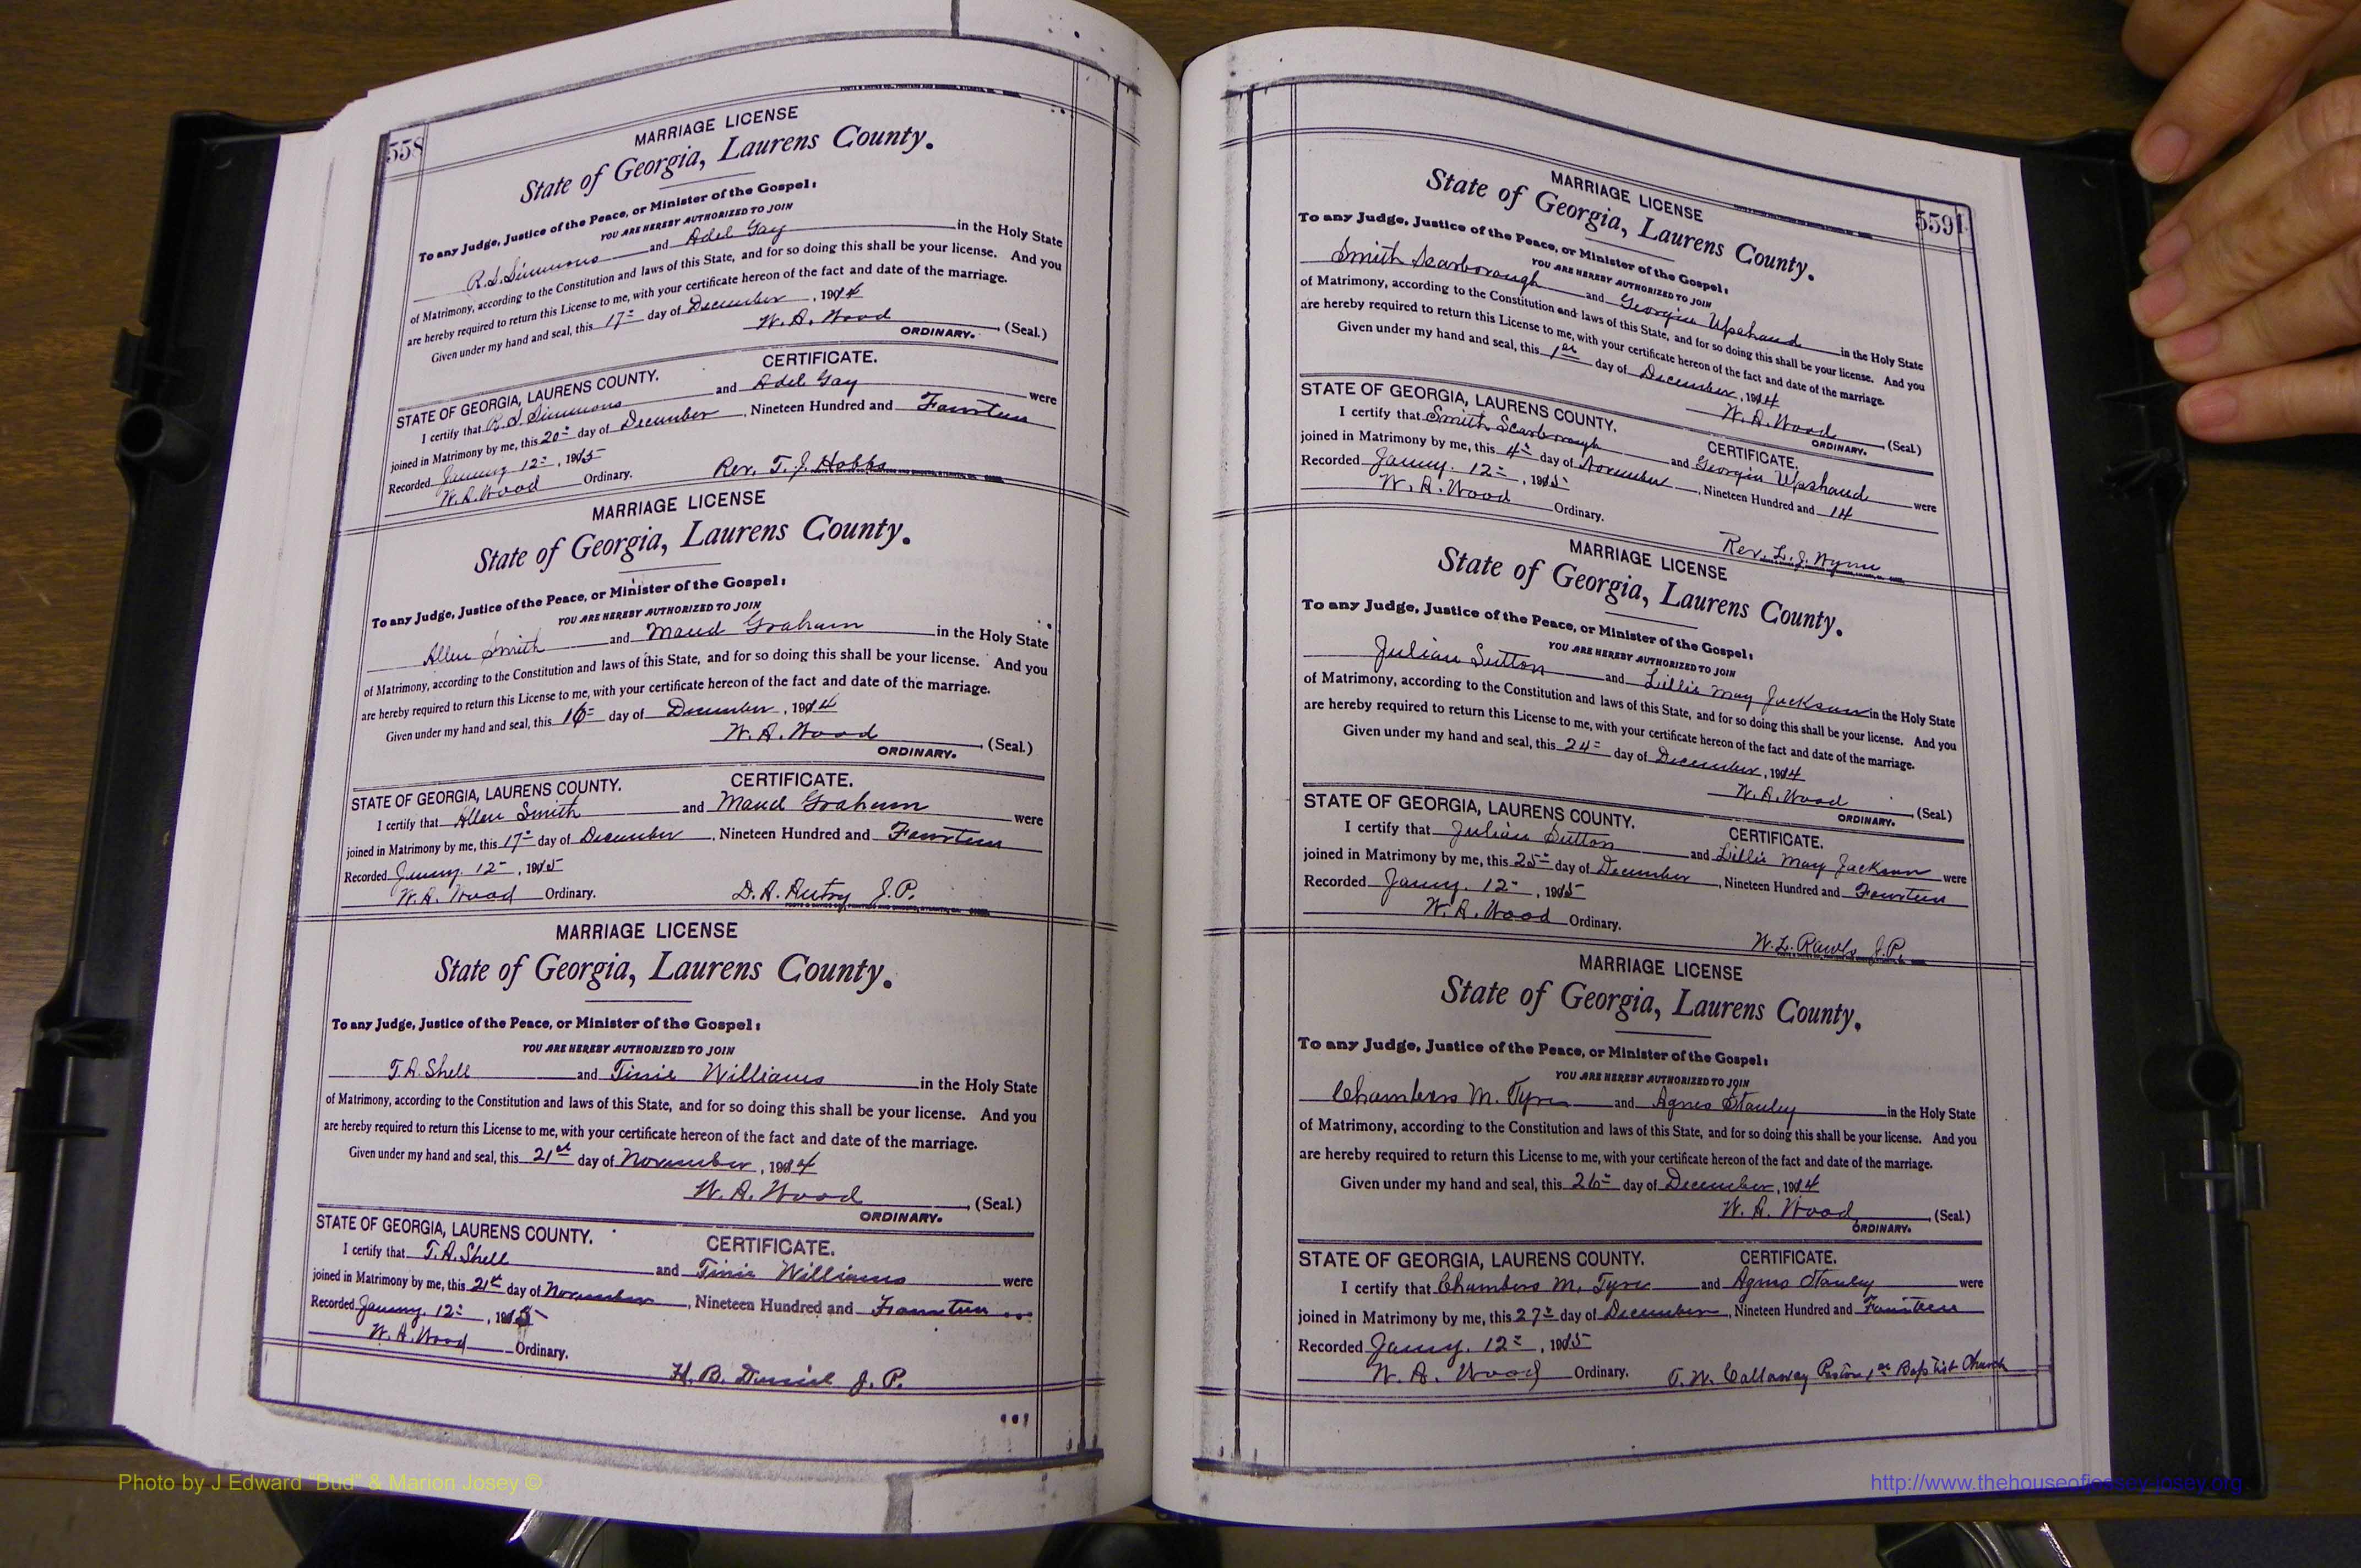 558
MARRIAGE LICENSE
State of Georgia, Laurens County.
To any Judge, Justice of the Peace, or Minister of the Gospel:
YOU ARE HEREBY AUTHORIZED TO JOIN
R. S. Simmons and Adel Gay in the Holy State
of Matrimony, according to the Constitution and laws of this State, and for so doing this shall be your license. And you
are hereby required to return this License to me, with your certificate hereon of the fact and date of the marriage.
Given under my hand and seal, this 17th day of December, 1914
W. A. Wood (Seal.)
ORDINARY.
CERTIFICATE.
STATE OF GEORGIA, LAURENS COUNTY.
I certify that R. S. Simmons and Adel Gay were
joined in Matrimony by me, this 20th day of December, Nineteen Hundred and Fourteen
Recorded January 12th, 1915
W. A. Wood Ordinary. Rev. T. J. Hobbs
MARRIAGE LICENSE
State of Georgia, Laurens County.
To any Judge, Justice of the Peace, or Minister of the Gospel:
YOU ARE HEREBY AUTHORIZED TO JOIN
Allen Smith and Maud Graham in the Holy State
of Matrimony, according to the Constitution and laws of this State, and for so doing this shall be your license. And you
are hereby required to return this License to me, with your certificate hereon of the fact and date of the marriage.
Given under my hand and seal, this 16th day of December, 1914
W. A. Wood (Seal.)
ORDINARY.
STATE OF GEORGIA, LAURENS COUNTY. CERTIFICATE.
I certify that Allen Smith and Maud Graham were
joined in Matrimony by me, this 17th day of December, Nineteen Hundred and Fourteen
Recorded Janny. 12th, 1915
W. A. Wood Ordinary. D. A. Autry J. P.
MARRIAGE LICENSE
State of Georgia, Laurens County.
To any Judge, Justice of the Peace, or Minister of the Gospel:
YOU ARE HEREBY AUTHORIZED TO JOIN
T. A. Shell and Tinie Williams in the Holy State
of Matrimony, according to the Constitution and laws of this State, and for so doing this shall be your license. And you
are hereby required to return this License to me, with your certificate hereon of the fact and date of the marriage.
Given under my hand and seal, this 21st day of November, 1914
W. A. Wood (Seal.)
ORDINARY.
STATE OF GEORGIA, LAURENS COUNTY. CERTIFICATE.
I certify that T. A. Shell and Tinie Williams were
joined in Matrimony by me, this 21st day of November, Nineteen Hundred and Fourteen
Recorded Janny. 12th, 1915
W. A. Wood Ordinary.
H. B. Daniel J. P.
559
MARRIAGE LICENSE
State of Georgia, Laurens County.
To any Judge, Justice of the Peace, or Minister of the Gospel:
YOU ARE HEREBY AUTHORIZED TO JOIN
Smith Scarborough and Georgia Upshaud in the Holy State
of Matrimony, according to the Constitution and laws of this State, and for so doing this shall be your license. And you
are hereby required to return this License to me, with your certificate hereon of the fact and date of the marriage.
Given under my hand and seal, this 1st day of December, 1914
W. A. Wood (Seal)
ORDINARY.
STATE OF GEORGIA, LAURENS COUNTY. CERTIFICATE.
I certify that Smith Scarborough and Georgia Upshaud were
joined in Matrimony by me, this 4th day of November, Nineteen Hundred and 14
Recorded Janny. 12th, 1915
W. A. Wood Ordinary.
Rev. L. J. Wynn
MARRIAGE LICENSE
State of Georgia, Laurens County.
To any Judge, Justice of the Peace, or Minister of the Gospel:
YOU ARE HEREBY AUTHORIZED TO JOIN
Julian Sutton and Lillie May Jackson in the Holy State
of Matrimony, according to the Constitution and laws of this State, and for so doing this shall be your license. And you
are hereby required to return this License to me, with your certificate hereon of the fact and date of the marriage.
Given under my hand and seal, this 24th day of December, 1914
W. A. Wood (Seal)
ORDINARY.
STATE OF GEORGIA, LAURENS COUNTY. CERTIFICATE.
I certify that Julian Sutton and Lillie May Jackson were
joined in Matrimony by me, this 25th day of December, Nineteen Hundred and Fourteen
Recorded Janny. 12th, 1915
W. A. Wood Ordinary.
W. L. Rawls J. P.
MARRIAGE LICENSE
State of Georgia, Laurens County.
To any Judge, Justice of the Peace, or Minister of the Gospel:
YOU ARE HEREBY AUTHORIZED TO JOIN
Chambers M. Tyre and Agnes Stanley in the Holy State
of Matrimony, according to the Constitution and laws of this State, and for so doing this shall be your license. And you
are hereby required to return this License to me, with your certificate hereon of the fact and date of the marriage.
Given under my hand and seal, this 26th day of December, 1914
W. A. Wood (Seal)
ORDINARY.
STATE OF GEORGIA, LAURENS COUNTY. CERTIFICATE.
I certify that Chambers M. Tyre and Agnes Stanley were
joined in Matrimony by me, this 27th day of December, Nineteen Hundred and Fourteen
Recorded Janny. 12th, 1915
W. A. Wood Ordinary. T. W. Callaway Pastor 1st Baptist Church
Photo by J Edward "Bud" & Marion Josey ©
http://www.thehouseofjossey-josey.org